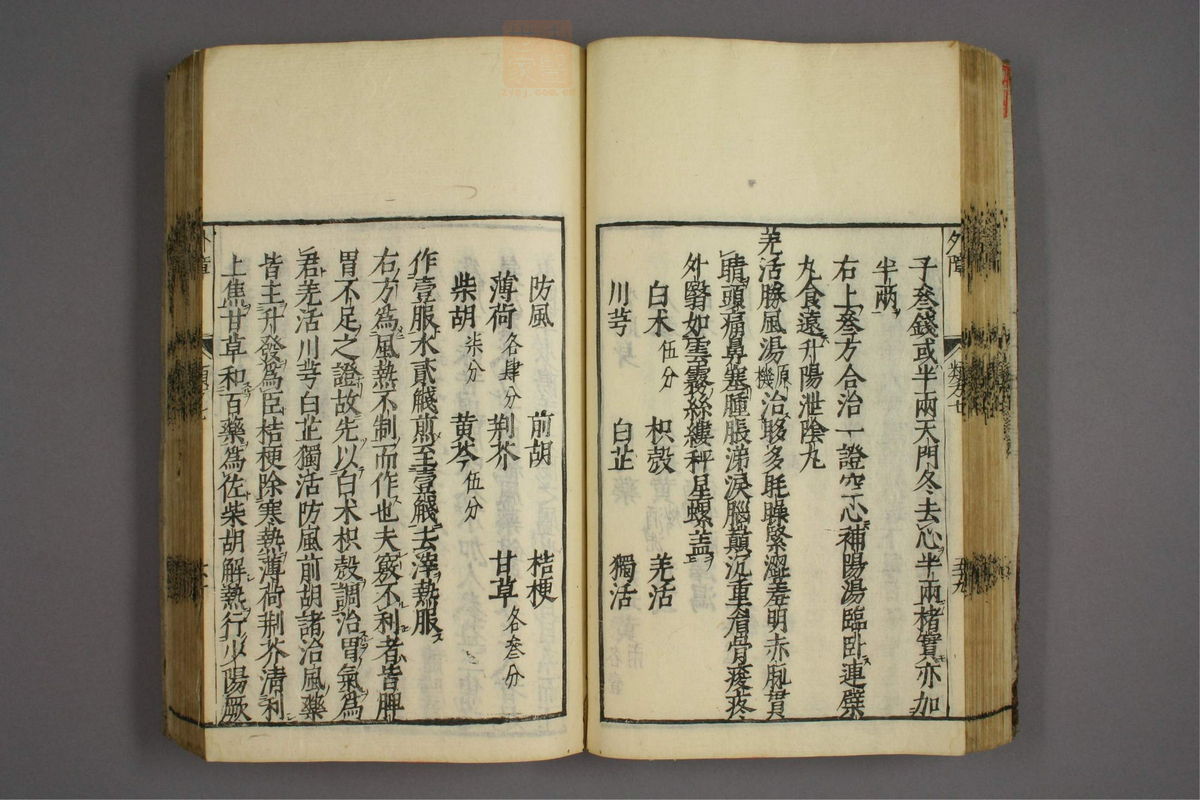 子叁錢或半兩天門冬去心半兩楮實亦加
半兩
右上叁方合治一證空心補陽湯臨臥連蘗
丸食遠升陽泄陰丸
羌活勝風湯原機治眵多眊矂緊澀羞明赤脈貫
睛頭痛鼻塞腫脹涕淚腦巔沉重眉骨痠疼
外翳如雲霧絲縷秤星螺蓋
白朮伍分 枳殼 羌活
川芎 白芷 獨活
防風 前胡 桔梗
薄荷各肆分 荆芥 甘草各叁分
柴胡柒分 黄芩伍分
作壹服水貳餞煎至壹餞去滓熱服
右方爲風熱不制而作也夫竅不利者皆脾
胃不足之證故先以白朮枳殼調治胃氣爲
君羌活川芎白芷獨活防風前胡諸治風藥
皆主升發爲臣桔梗除寒熱薄荷荆芥清利
上焦甘草和百藥爲佐柴胡解熱行少陽厥